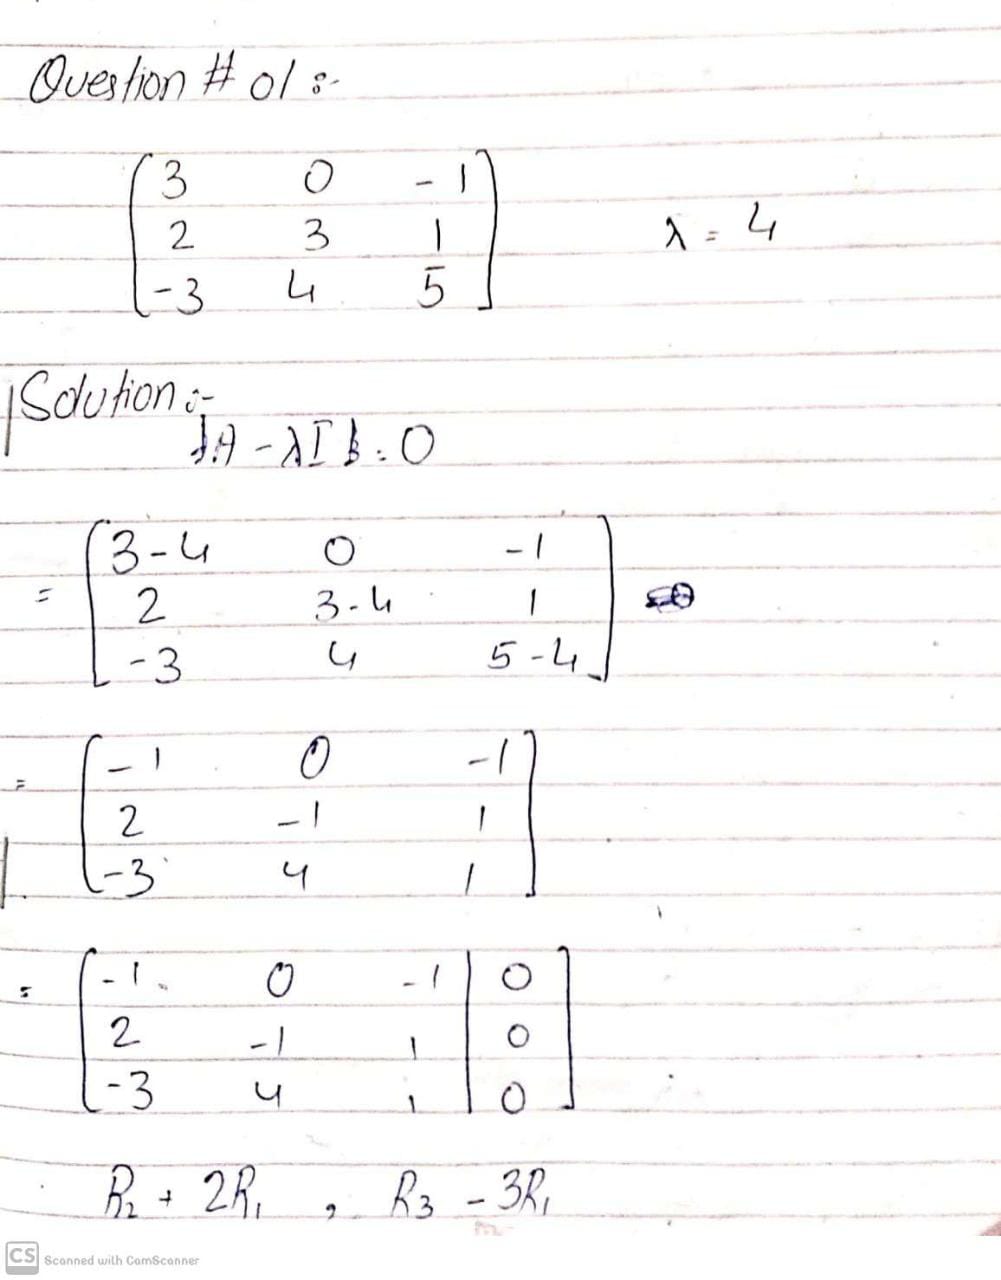 Question # 01 :-
3 0 -1
2 3 1 λ = 4
-3 4 5
Solution :-
A - λI = 0
3-4 0 -1
= 2 3-4 1
-3 4 5-4
-1 0 -1
= 2 -1 1
-3 4 1
= -1 0 -1 | 0
2 -1 1 | 0
-3 4 1 | 0
R₂ + 2R₁ , R₃ - 3R₁
CS Scanned with CamScanner